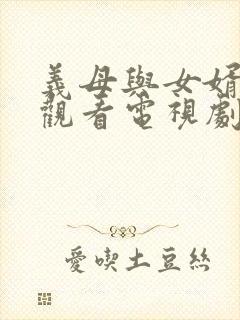 義母與女婿
觀看電視劇
愛喫土豆絲